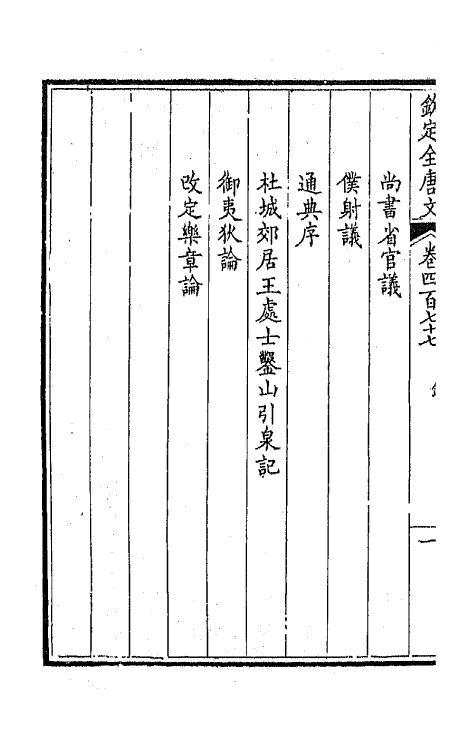 欽定全唐文 卷四百七十七 一
尚書省官議
僕射議
通典序
杜城郊居王處士鑿山引泉記
御夷狄論
改定樂章論